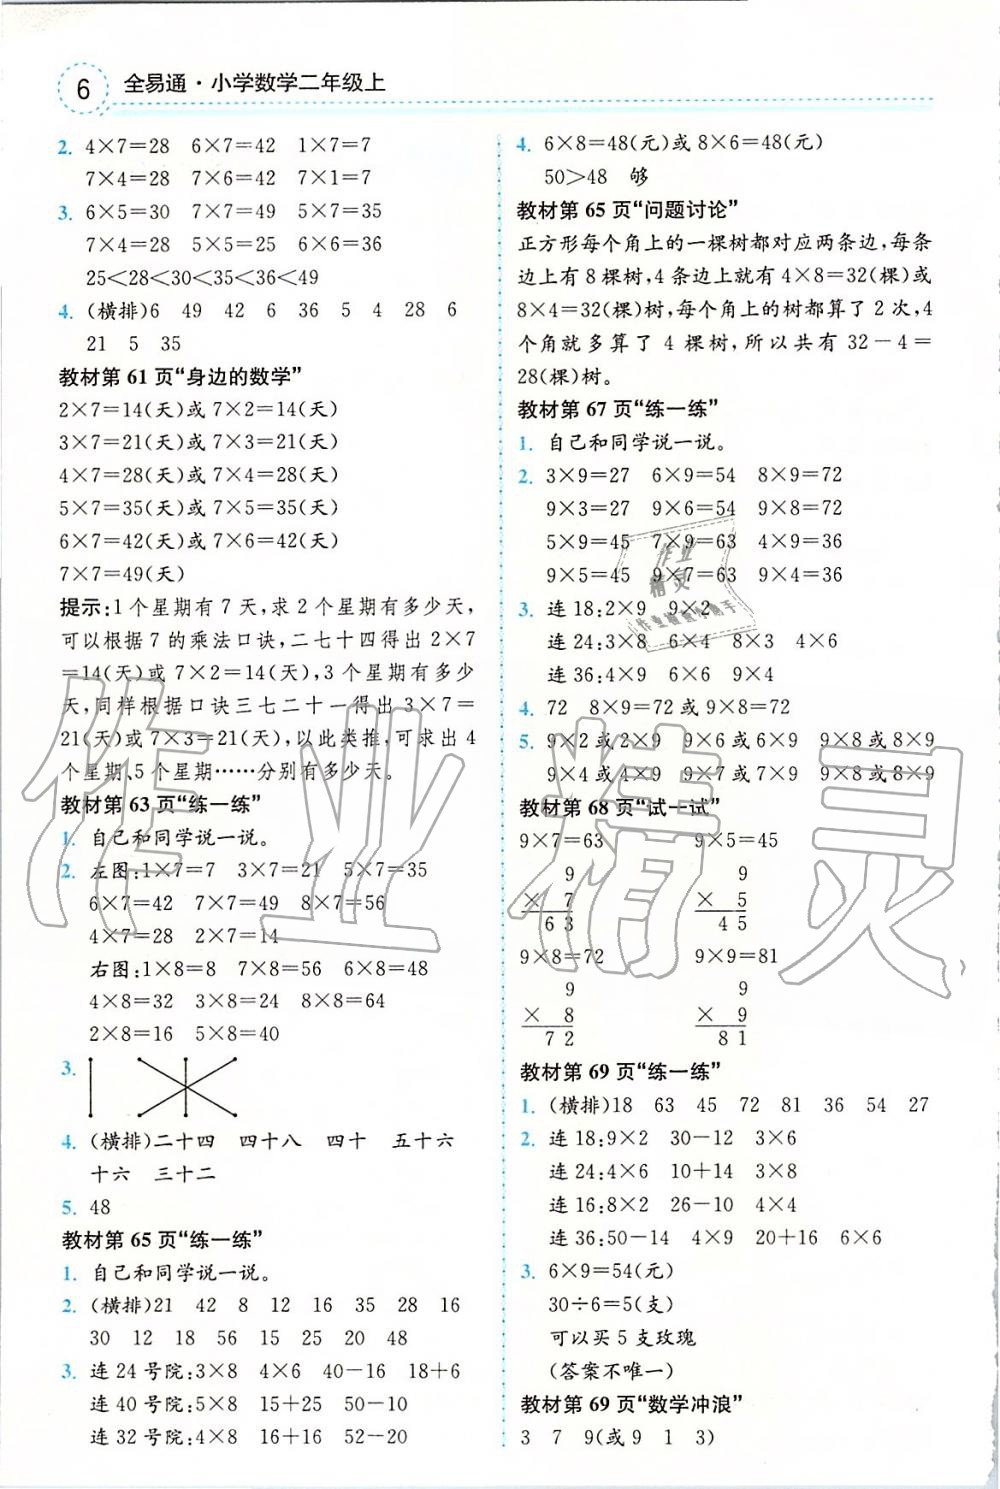 6
全易通·小学数学二年级上
2. 4×7=28 6×7=42 1×7=7
7×4=28 7×6=42 7×1=7
3. 6×5=30 7×7=49 5×7=35
7×4=28 5×5=25 6×6=36
25<28<30<35<36<49
4. (横排)6 49 42 6 36 5 4 28 6
21 5 35
教材第 61 页“身边的数学”
2×7=14(天)或 7×2=14(天)
3×7=21(天)或 7×3=21(天)
4×7=28(天)或 7×4=28(天)
5×7=35(天)或 7×5=35(天)
6×7=42(天)或 7×6=42(天)
7×7=49(天)
提示:1 个星期有 7 天,求 2 个星期有多少天,
可以根据 7 的乘法口诀,二七十四得出 2×7
=14(天)或 7×2=14(天),3 个星期有多少
天,同样根据口诀三七二十一得出 3×7=
21(天)或 7×3=21(天),以此类推,可求出 4
个星期、5 个星期……分别有多少天。
教材第 63 页“练一练”
1. 自己和同学说一说。
2. 左图:1×7=7 3×7=21 5×7=35
6×7=42 7×7=49 8×7=56
4×7=28 2×7=14
右图:1×8=8 7×8=56 6×8=48
4×8=32 3×8=24 8×8=64
2×8=16 5×8=40
3.
4. (横排)二十四 四十八 四十 五十六
十六 三十二
5. 48
教材第 65 页“练一练”
1. 自己和同学说一说。
2. (横排)21 42 8 12 16 35 28 16
30 12 18 56 15 25 20 48
3. 连 24 号院:3×8 4×6 40−16 18+6
连 40 号院:5×8 15+25 50−10
连 32 号院:4×8 16+16 52−20
4. 6×8=48(元)或 8×6=48(元)
50>48 够
教材第 65 页“问题讨论”
正方形每个角上的一棵树都对应两条边,每条
边上有 8 棵树,4 条边上就有 4×8=32(棵)或
8×4=32(棵)树,每个角上的树都算了 2 次,4
个角就多算了 4 棵树,所以共有 32−4=
28(棵)树。
教材第 67 页“练一练”
1. 自己和同学说一说。
2. 3×9=27 6×9=54 8×9=72
9×3=27 9×6=54 9×8=72
5×9=45 7×9=63 4×9=36
9×5=45 9×7=63 9×4=36
3. 连 18:2×9 9×2
连 24:3×8 6×4 8×3 4×6
连 36:4×9 6×6 9×4
4. 72 8×9=72 或 9×8=72
5. 9×2 或 2×9 9×6 或 6×9 9×8 或 8×9
9×4 或 4×9 9×7 或 7×9 9×8 或 8×9
教材第 68 页“试一试”
9×7=63 9×5=45
9 9
× 7 × 5
6 3 4 5
9×8=72 9×9=81
9 9
× 8 × 9
7 2 8 1
教材第 69 页“练一练”
1. (横排)18 63 45 72 81 36 54 27
2. 连 18:9×2 30−12 3×6
连 24:4×6 10+14 3×8
连 16:8×2 26−10 4×4
连 36:50−14 4×9 20+16 6×6
3. 6×9=54(元)
30÷6=5(支)
可以买 5 支玫瑰
(答案不唯一)
教材第 69 页“数学冲浪”
3 7 9(或 9 1 3)
作业精灵
作业
精灵